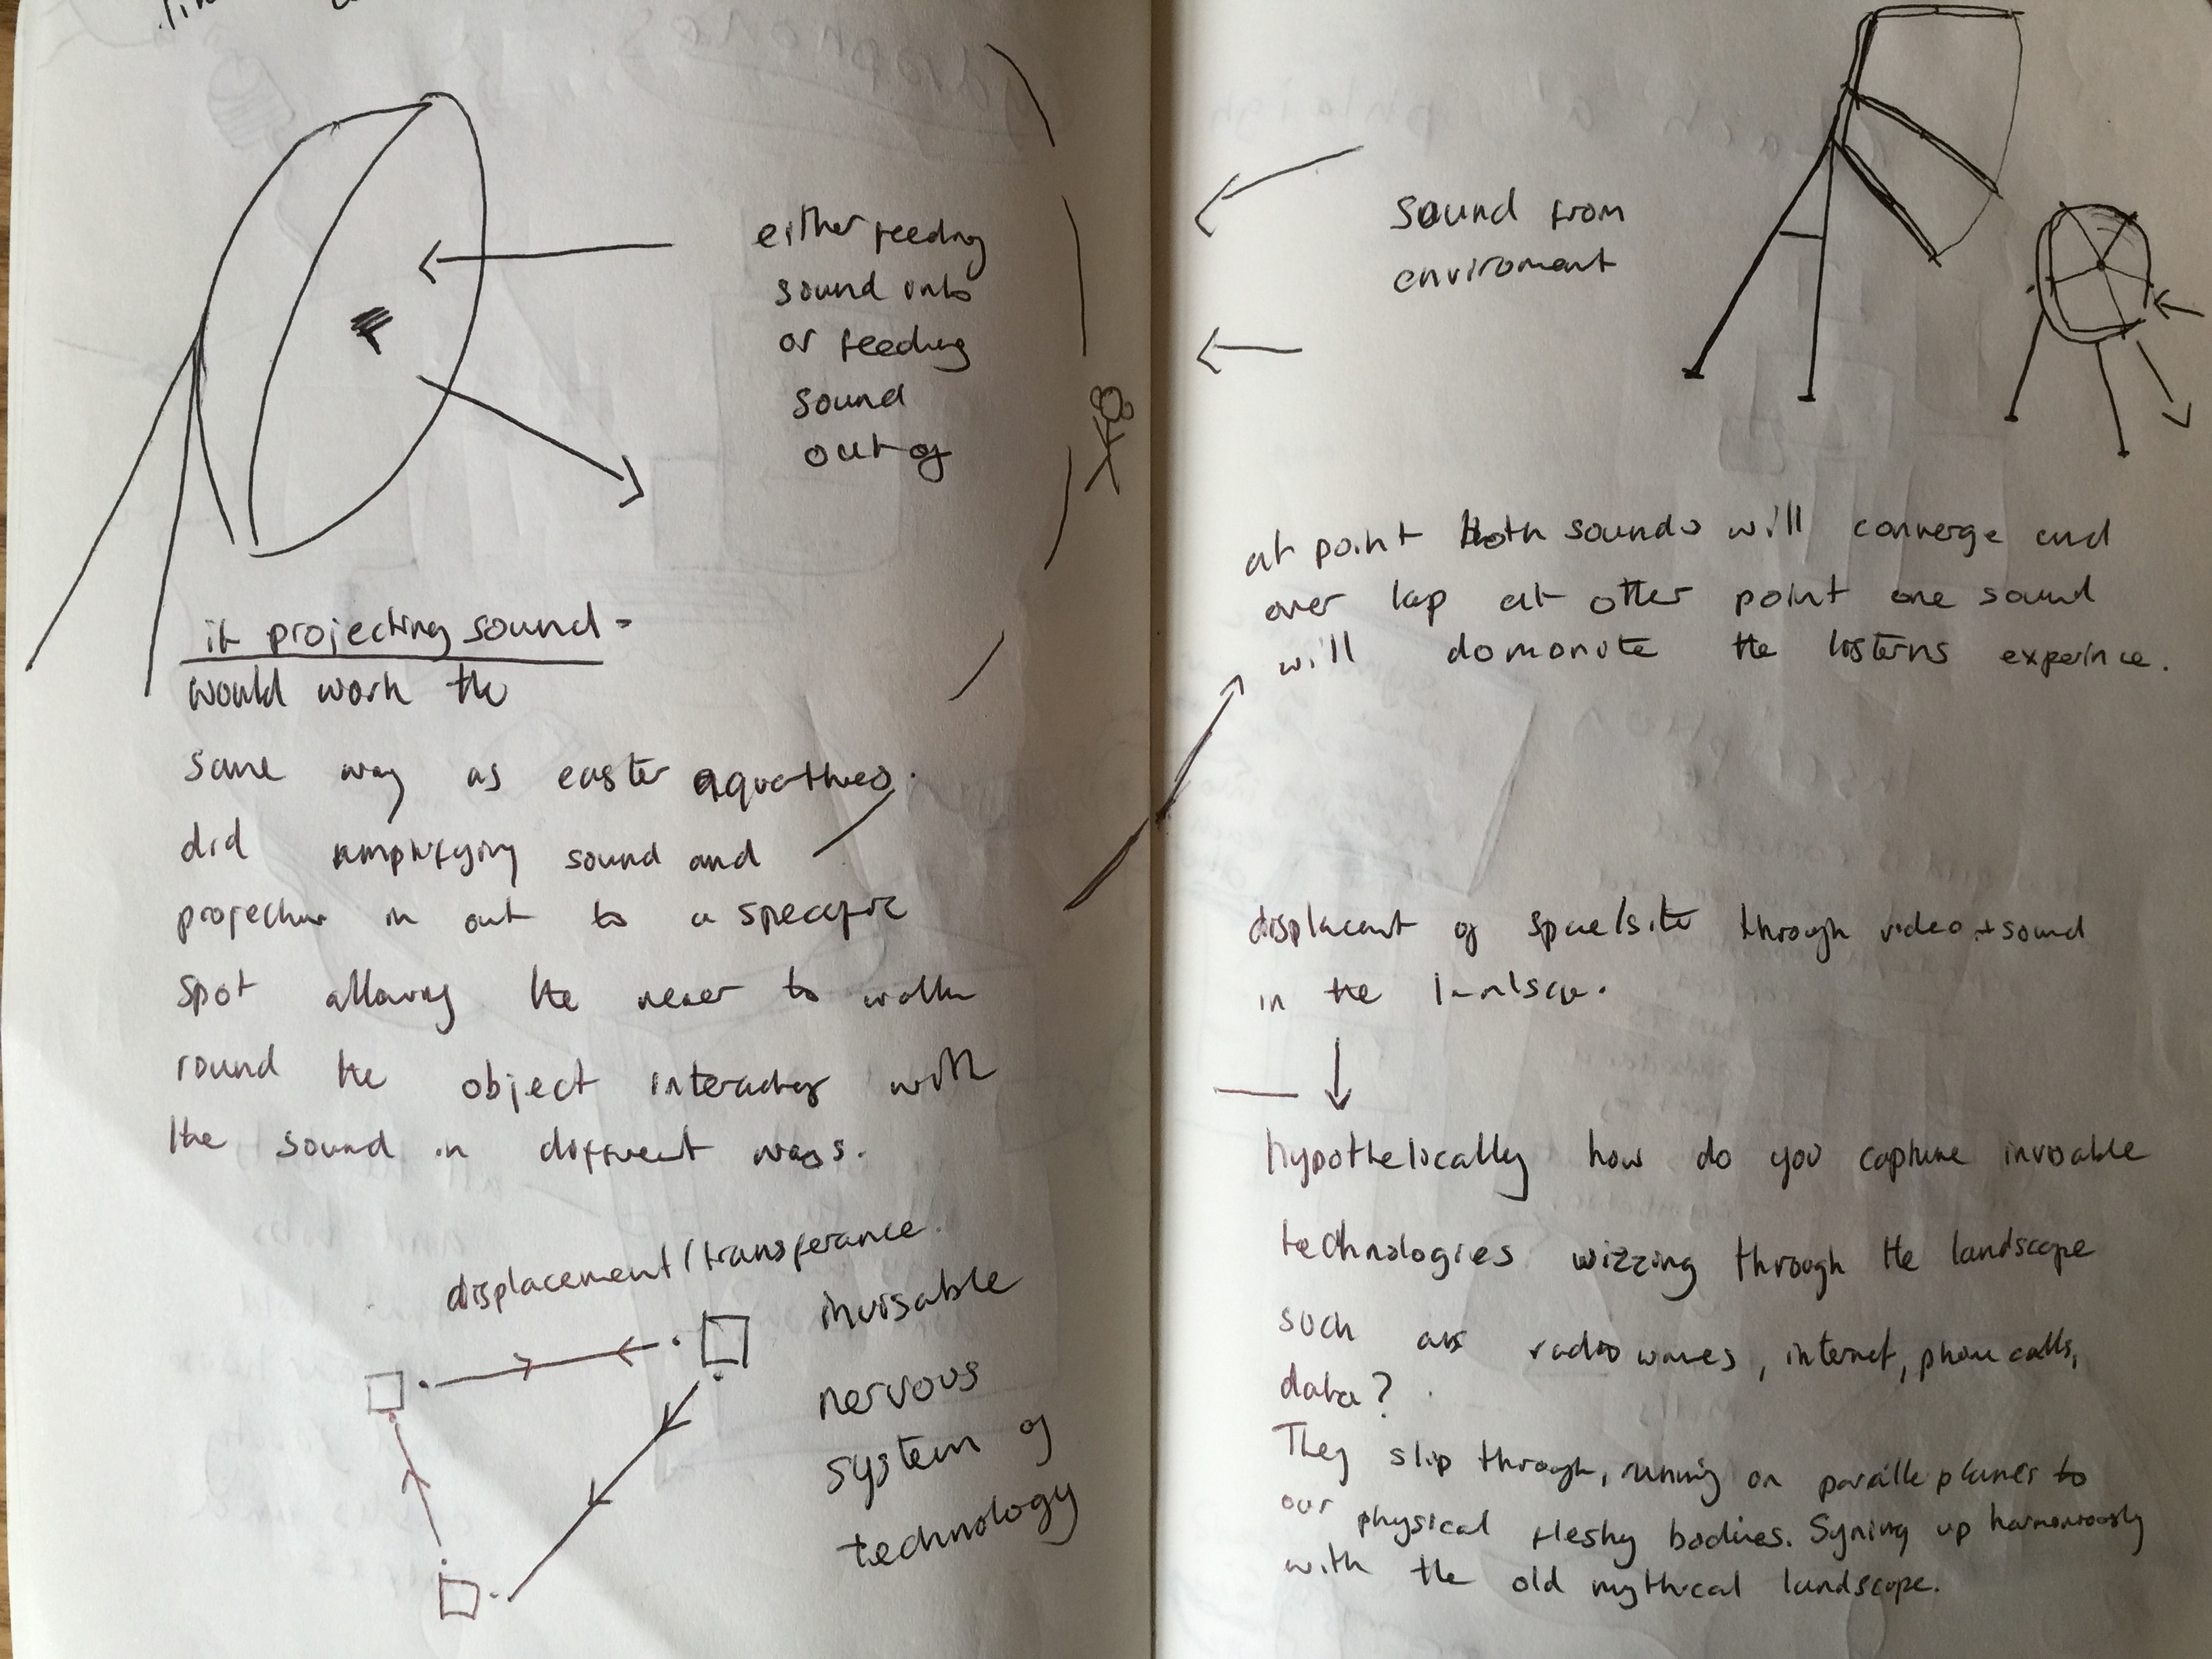 either feeding
sound into
or feeding
sound
out of
if projecting sound -
would work the
same way as easter
did amplifying sound and
out to a specific
spot allowing the to walk
round the object interacting with
the sound in different ways.
displacement/transferance.
invisable
nervous
system of
technology
sound from
enviroment
at point both sounds will converge and
over lap at other point one sound
will domonate the listerns experince.
of space/site through video + sound
in the
hypothetically how do you capture invisable
technologies wizzing through the landscape
such as radio waves, internet, phone calls,
data?
They slip through, running on planes to
our physical fleshy bodies. Syning up harmoniously
with the old mythical landscape.